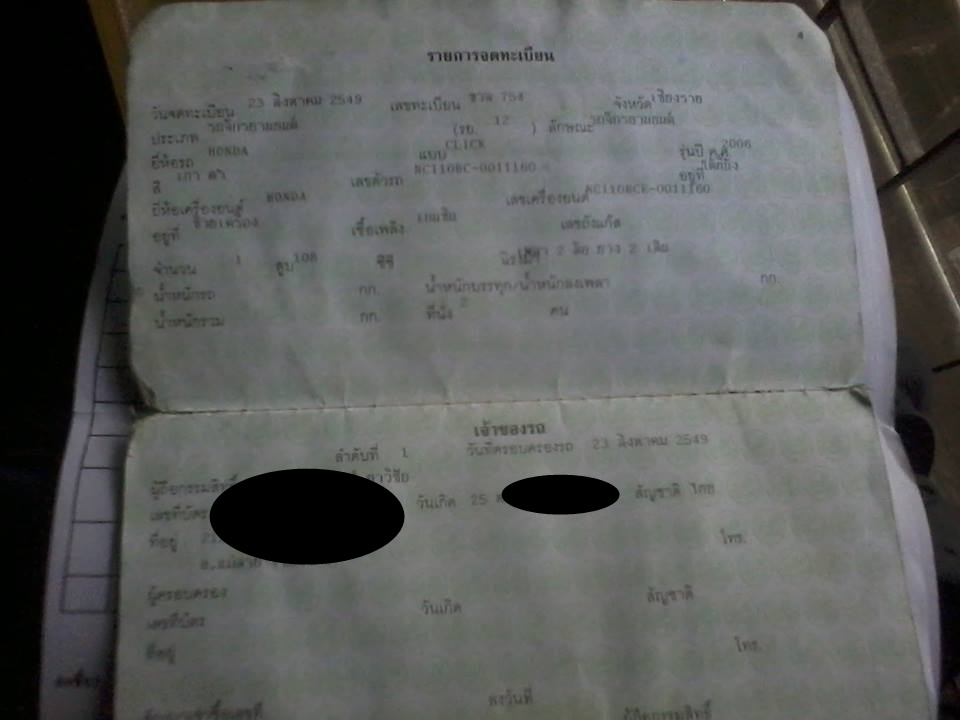 4
รายการจดทะเบียน
วันจดทะเบียน 23 สิงหาคม 2549 เลขทะเบียน 754 จังหวัด เชียงราย
ประเภท รถจักรยานยนต์ (รย. 12 ) ลักษณะ รถจักรยานยนต์
ยี่ห้อรถ HONDA แบบ CLICK รุ่นปี ค.ศ. 2006
สี เทา ดำ เลขตัวรถ NC110BC-0011160 อยู่ที่ ใต้ที่นั่ง
ยี่ห้อเครื่องยนต์ HONDA เลขเครื่องยนต์ NC110BCE-0011160
อยู่ที่ ซ้ายเครื่อง เชื้อเพลิง เบนซิน เลขถังแก๊ส
จำนวน 1 สูบ 108 ซีซี 2 ล้อ ยาง 2 เส้น
น้ำหนักรถ กก. น้ำหนักบรรทุก/น้ำหนักลงเพลา กก.
น้ำหนักรวม กก. ที่นั่ง 2 คน
เจ้าของรถ
ลำดับที่ 1 วันที่ครอบครองรถ 23 สิงหาคม 2549
ผู้ถือกรรมสิทธิ์
เลขที่บัตร วันเกิด 25 สัญชาติ ไทย
ที่อยู่ โทร.
อ.แม่สาย
ผู้ครอบครอง
เลขที่บัตร วันเกิด สัญชาติ
ที่อยู่ โทร.
ลงวันที่ ผู้ถือกรรมสิทธิ์